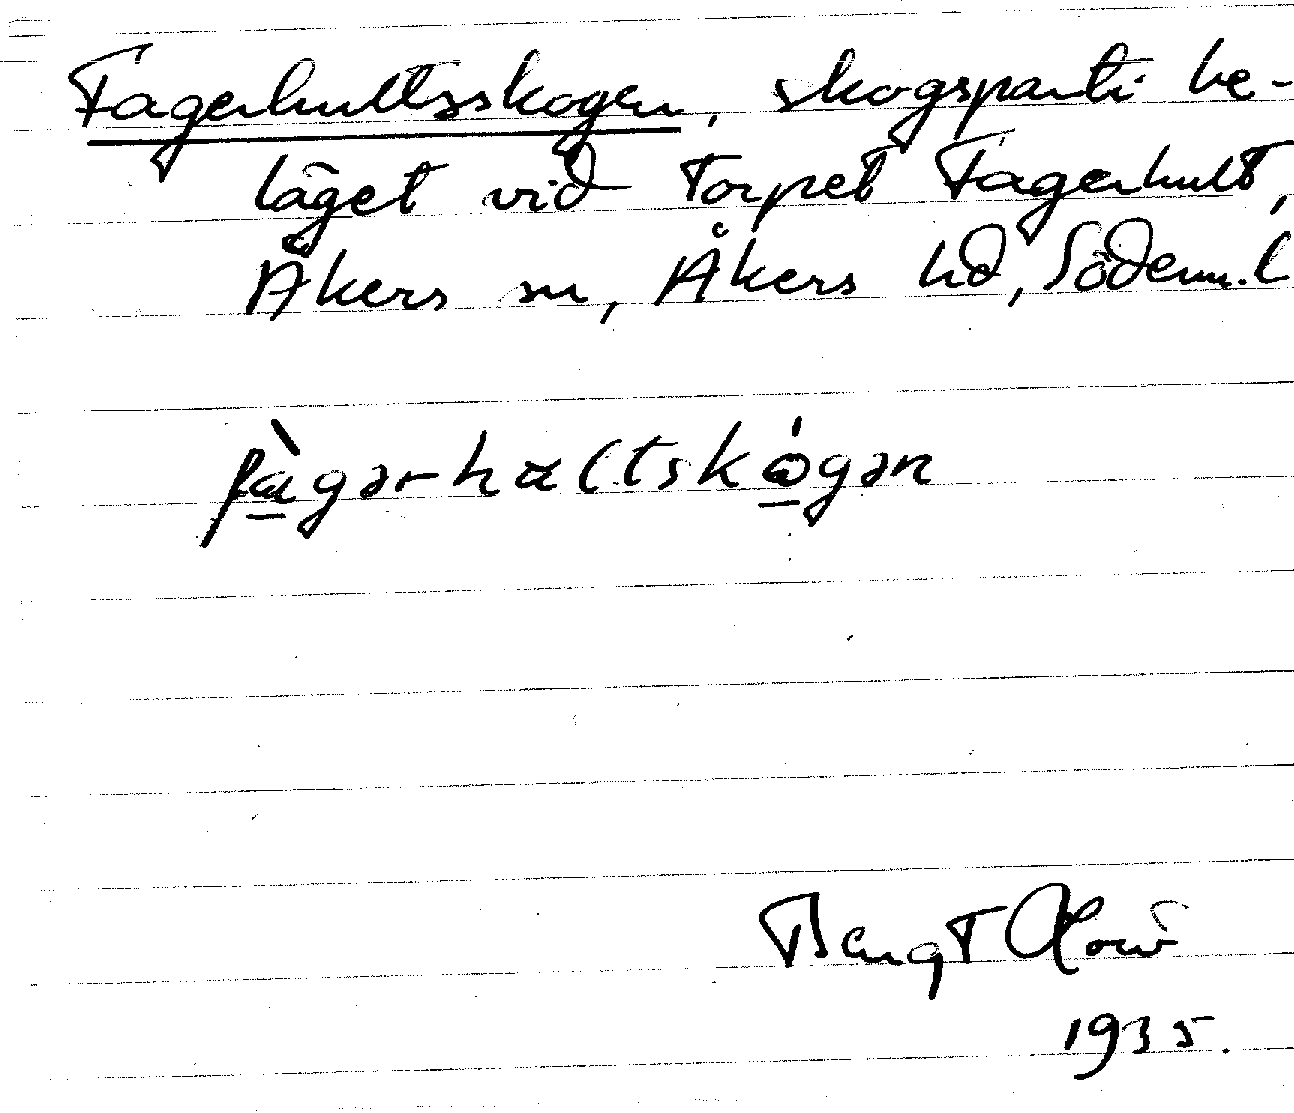 Fagerhultsskogen, skogsparti be-
läget vid torpet Fagerhult,
Åkers sn, Åkers hd, Söderm. l
fàgərhαltskógən
Bengt
1935.